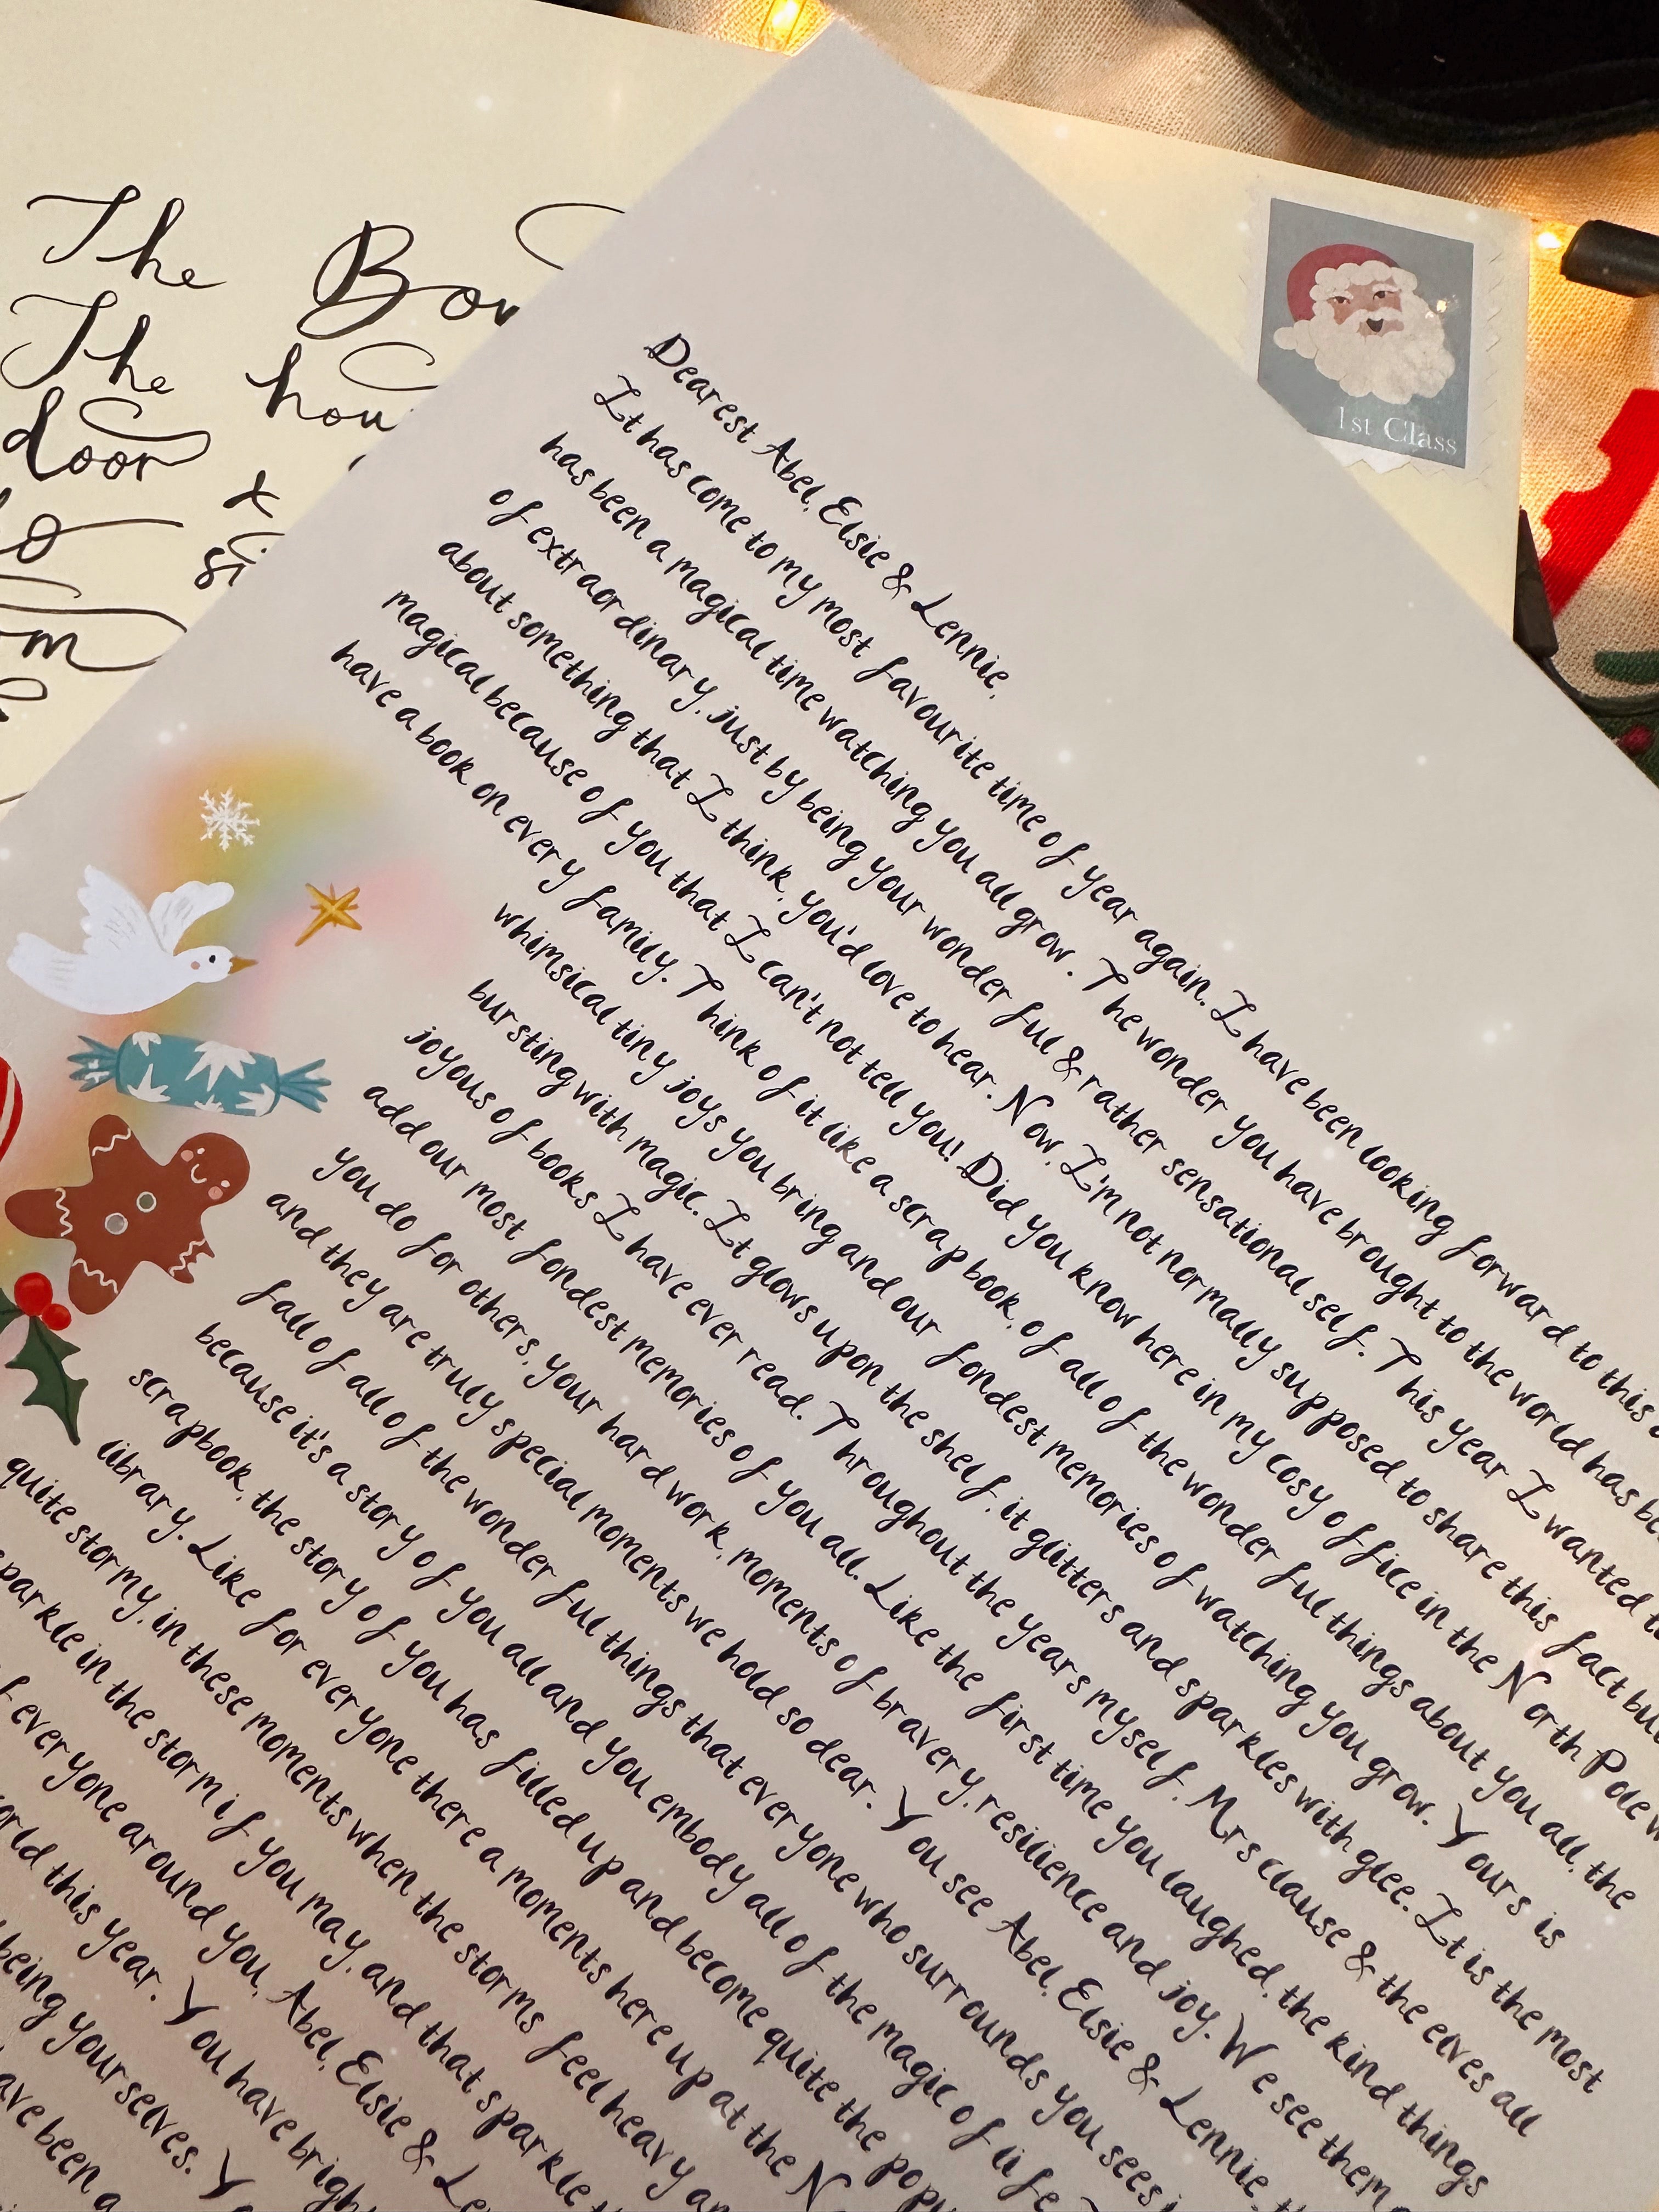 The
The
door
Dearest Abel, Elsie & Lennie,
It has come to my most favourite time of year again. I have been looking forward to this
has been a magical time watching you all grow. The wonder you have brought to the world has
of extraordinary, just by being your wonderful & rather sensational self. This year I wanted
about something that I think, you'd love to hear. Now, I'm not normally supposed to share this fact
magical because of you that I can't not tell you! Did you know here in my cosy office in the North Pole
have a book on every family. Think of it like a scrapbook, of all of the wonderful things about you all, the
whimsical tiny joys you bring and our fondest memories of watching you grow. Yours is
bursting with magic. It glows upon the shelf, it glitters and sparkles with glee. It is the most
joyous of books I have ever read. Throughout the years myself, Mrs clause & the elves all
add our most fondest memories of you all. Like the first time you laughed, the kind things
you do for others, your hard work, moments of bravery, resilience and joy. We see them
and they are truly special moments we hold so dear. You see Abel, Elsie & Lennie,
fall of all of the wonderful things that everyone who surrounds you sees
because it's a story of you all and you embody all of the magic of life
scrapbook, the story of you has filled up and become quite the
library. Like for everyone there a moments here up at the
quite stormy, in these moments when the storms feel heavy
sparkle in the storm if you may, and that sparkle
everyone around you, Abel, Elsie &
this year. You have
being yourselves.
been a
1st Class